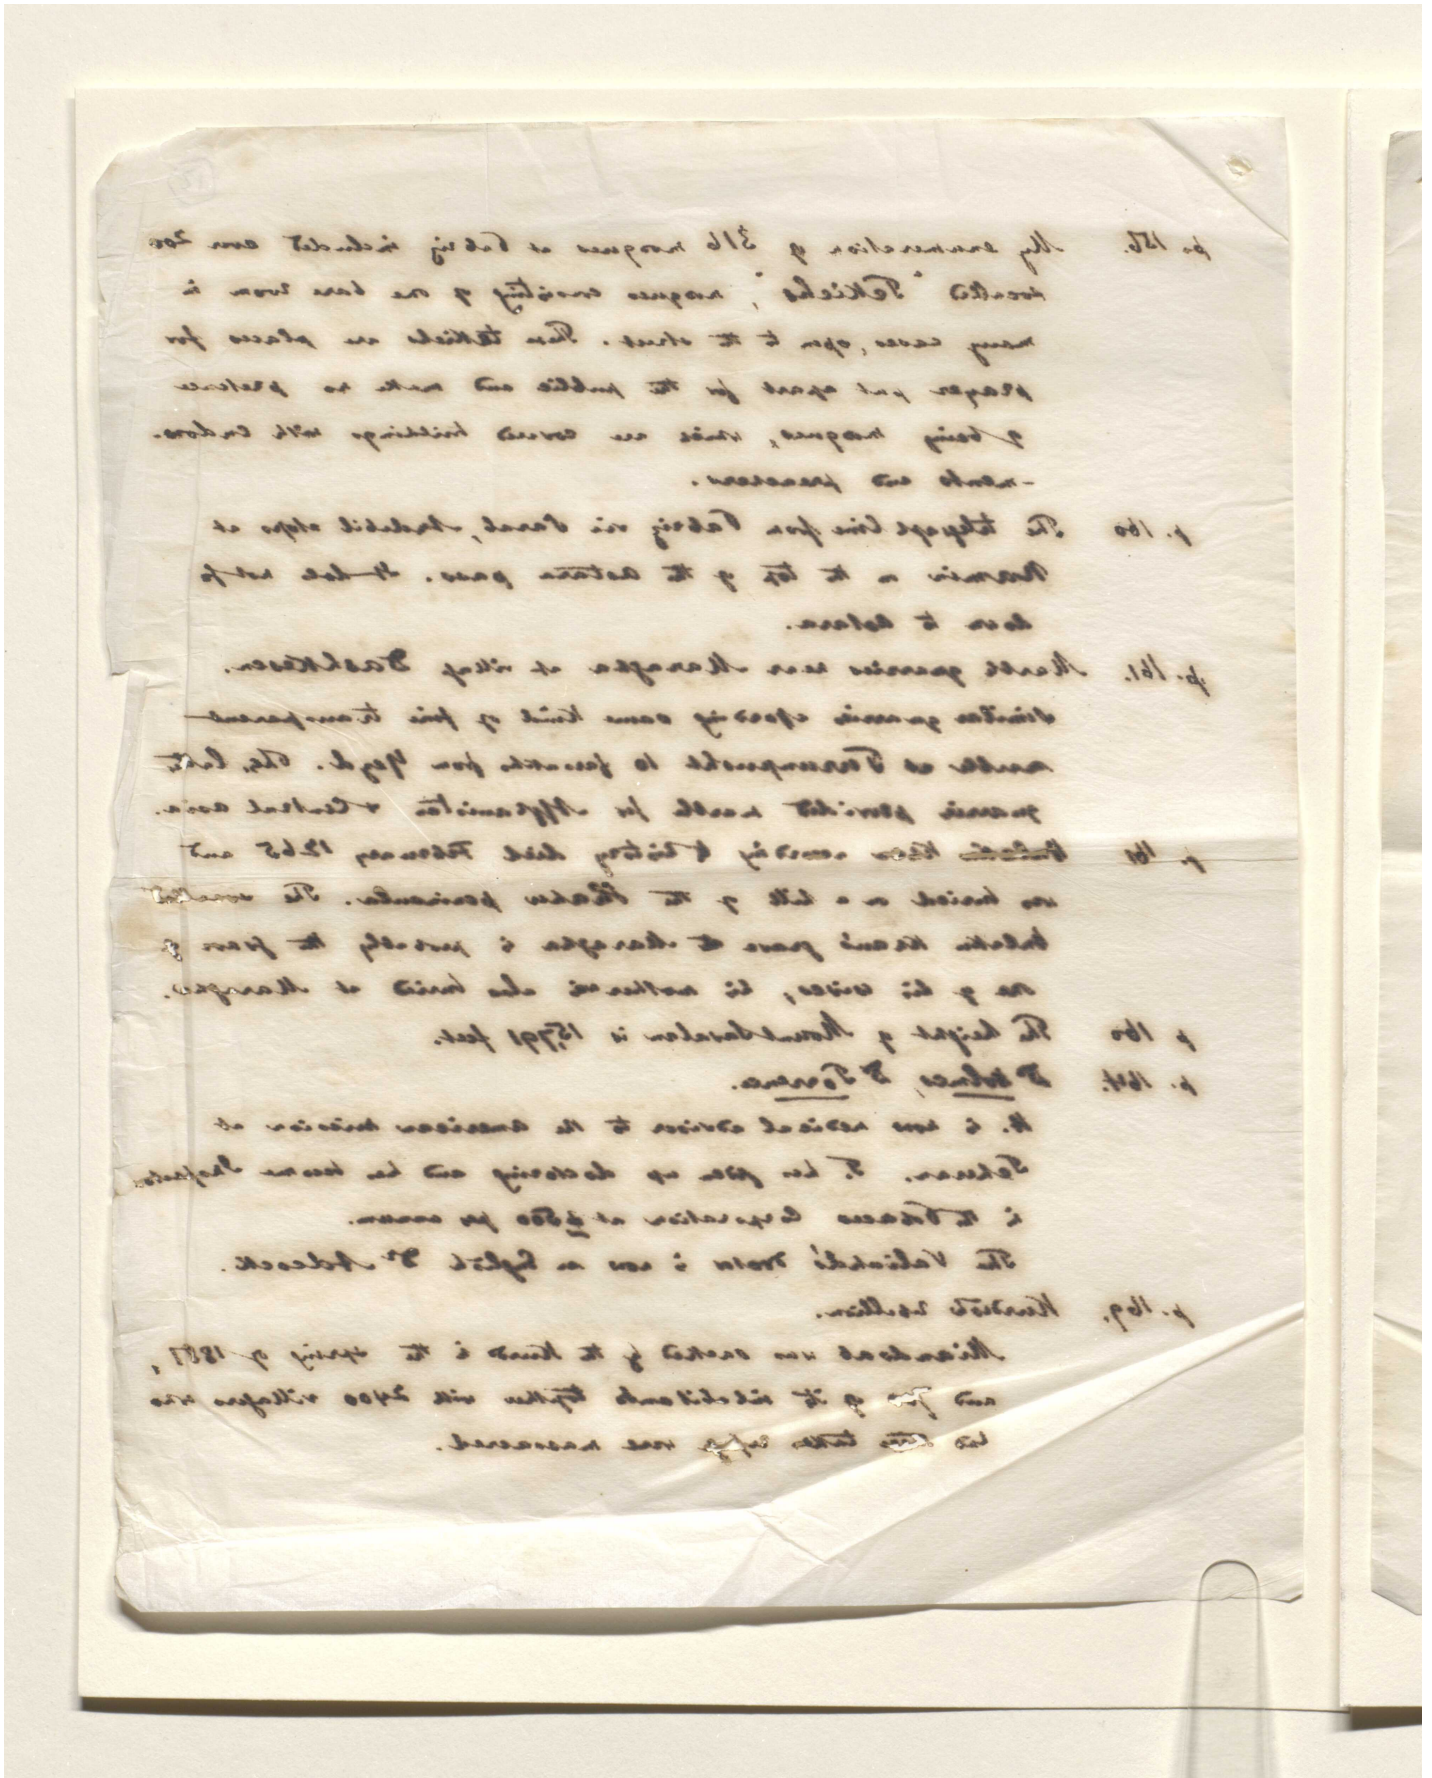 p. 156. My enumeration of 316 mosques at Tabriz included over 200
so called "Tekiehs", mosques consisting of one bare room in
many cases, open to the street. These tekiehs are places for
prayer put apart for the public and make no pretence
of being mosques, which are covered buildings with endow-
-ments and preachers.
p. 160 The telegraph line from Tabriz via Sarab, Ardebil stops at
Namin on the top of the Astara pass. It does not go
down to Astara.
p. 161. Marble quarries near Maragha at village Dashkesen.
Similar quarries affording same kind of fine transparent
marble at Turunpusht 10 farsakhs from Yezd. The latter
quarries provided marble for Afghanistan & Central Asia.
p. 161 Hulaku Khan according to history died February 1265 and
was buried on a hill of the Shahu peninsula. The so called
Hulaku Khan's grave at Maragha is probably the grave of
one of his wives, his mother is also buried at Maragha.
p 160 The height of Mount Savalan is 15,791 feet.
p. 164. Dr Holmes, Dr Torrence.
H. is now medical adviser to the American Mission at
Teheran. T. has given up doctoring and has become Inspector
in the Tobacco Corporation at £500 per annum.
The Valiahd's Doctor is now an English Dr Adcock.
p. 169. Kurdish rebellion.
Miandoab was sacked by the Kurds in the spring of 1881,
and 700 of its inhabitants together with 2400 villagers who
had taken refuge were massacred.